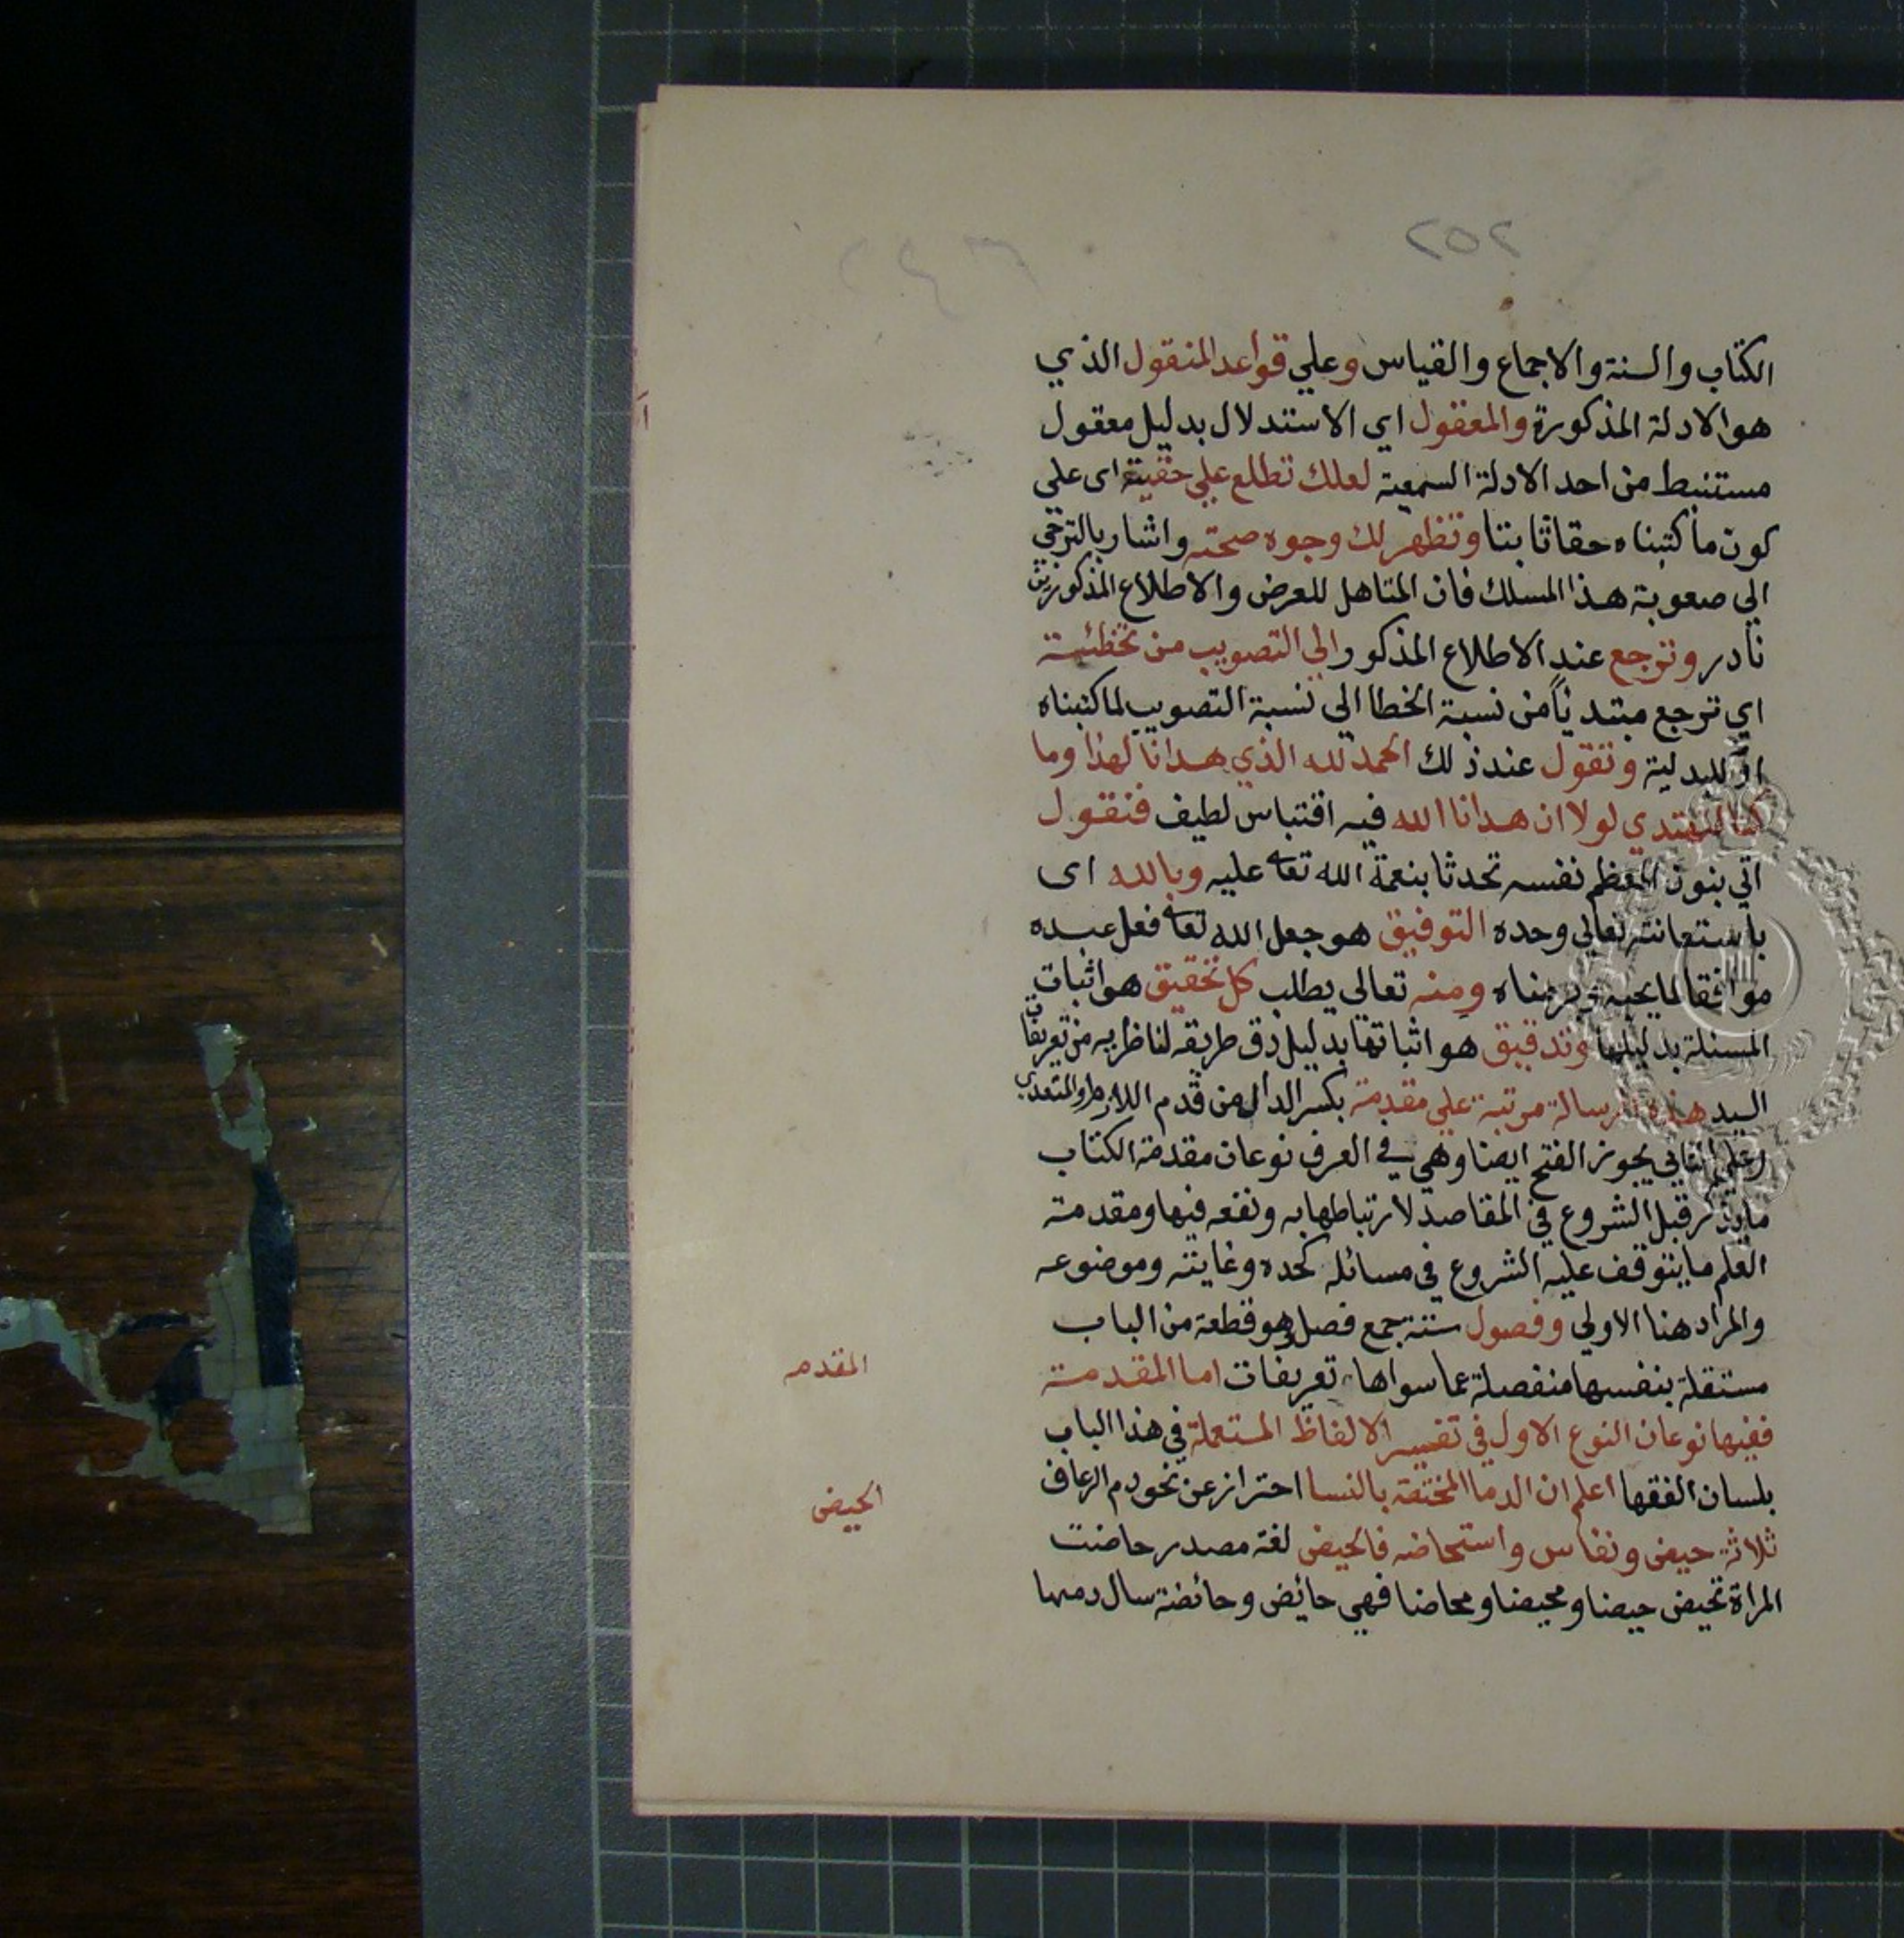 ٢٥٢
الكتاب والسنة والاجماع والقياس وعلي قواعد المنقول الذي
هو الادلة المذكورة والمعقول اي الاستدلال بدليل معقول
مستنبط من احد الادلة السمعية لعلك تطلع علي حقيته اى علي
كون ما كتبناه حقا ثابتا وتظهر لك وجوه صحته واشار بالترجي
الي صعوبة هذا المسلك فان المتاهل للعرض والاطلاع المذكورين
نادر وترجع عند الاطلاع المذكور الي التصويب من تخطئته
اي ترجع مبتدئا من نسبة الخطا الي نسبة التصويب لما كتبناه
او للبدلية وتقول عند ذلك الحمد لله الذي هدانا لهذا وما
كنا لنهتدي لولا ان هدانا الله فيه اقتباس لطيف فنقول
اتي بنون المعظم نفسه تحدثا بنعمة الله تعا عليه وبالله اى
باستعانته تعالي وحده التوفيق هو جعل الله تعا فعل عبده
موافقا لما يحبه ويرضاه ومنه تعالى يطلب كل تحقيق هو اثبات
المسئلة بدليلها وتدقيق هو اثباتها بدليل دق طريقه لناظريه من تعريفات
السيد هذه الرسالة مرتبة علي مقدمة بكسر الدال من قدم اللازم او المتعدي
وعلي الثاني يجوز الفتح ايضا وهي في العرف نوعان مقدمة الكتاب
ما يذكر قبل الشروع في المقاصد لارتباطها به ونفعه فيها ومقدمة
العلم ما يتوقف عليه الشروع في مسائله كحده وغايته وموضوعه
والمراد هنا الاولي وفصول ستة جمع فصل وهو قطعة من الباب
مستقلة بنفسها منفصلة عما سواها تعريفات اما المقدمة
المقدمه
ففيها نوعان النوع الاول في تفسير الالفاظ المستعملة في هذا الباب
بلسان الفقها اعلم ان الدما المختصة بالنسا احتراز عن نحو دم الرعاف
الحيض
ثلاثة حيض ونفاس واستحاضه فالحيض لغة مصدر حاضت
المراة تحيض حيضا ومحيضا ومحاضا فهي حائض وحائضة سال دمها